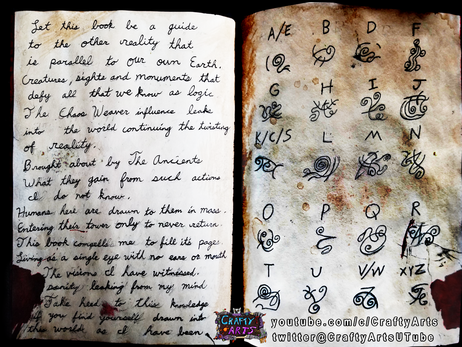 Let this book be a guide
to the other reality that
is parallel to our own Earth.
Creatures, sights and monuments that
defy all that we know as logic
The Chaos Weaver influence leak
into the world continuing the twisting
of reality.
Brought about by The Ancients
What they gain from such actions
I do not know.
Humans here are drawn to them in mass.
Entering their tower only to never return.
This book compells me to fill its pages
Living as a single eye with no ears or mouth
The visions I have witnessed.
sanity leaking from my mind
Take heed to this knowledge
if you find yourself drawn into
this world, as I have been
A/E B D F
G H I J
K/C/S L M N
O P Q R
T U V/W XYZ
CRAFTY ARTS
youtube.com/c/CraftyArts
twitter@CraftyArtsUTube